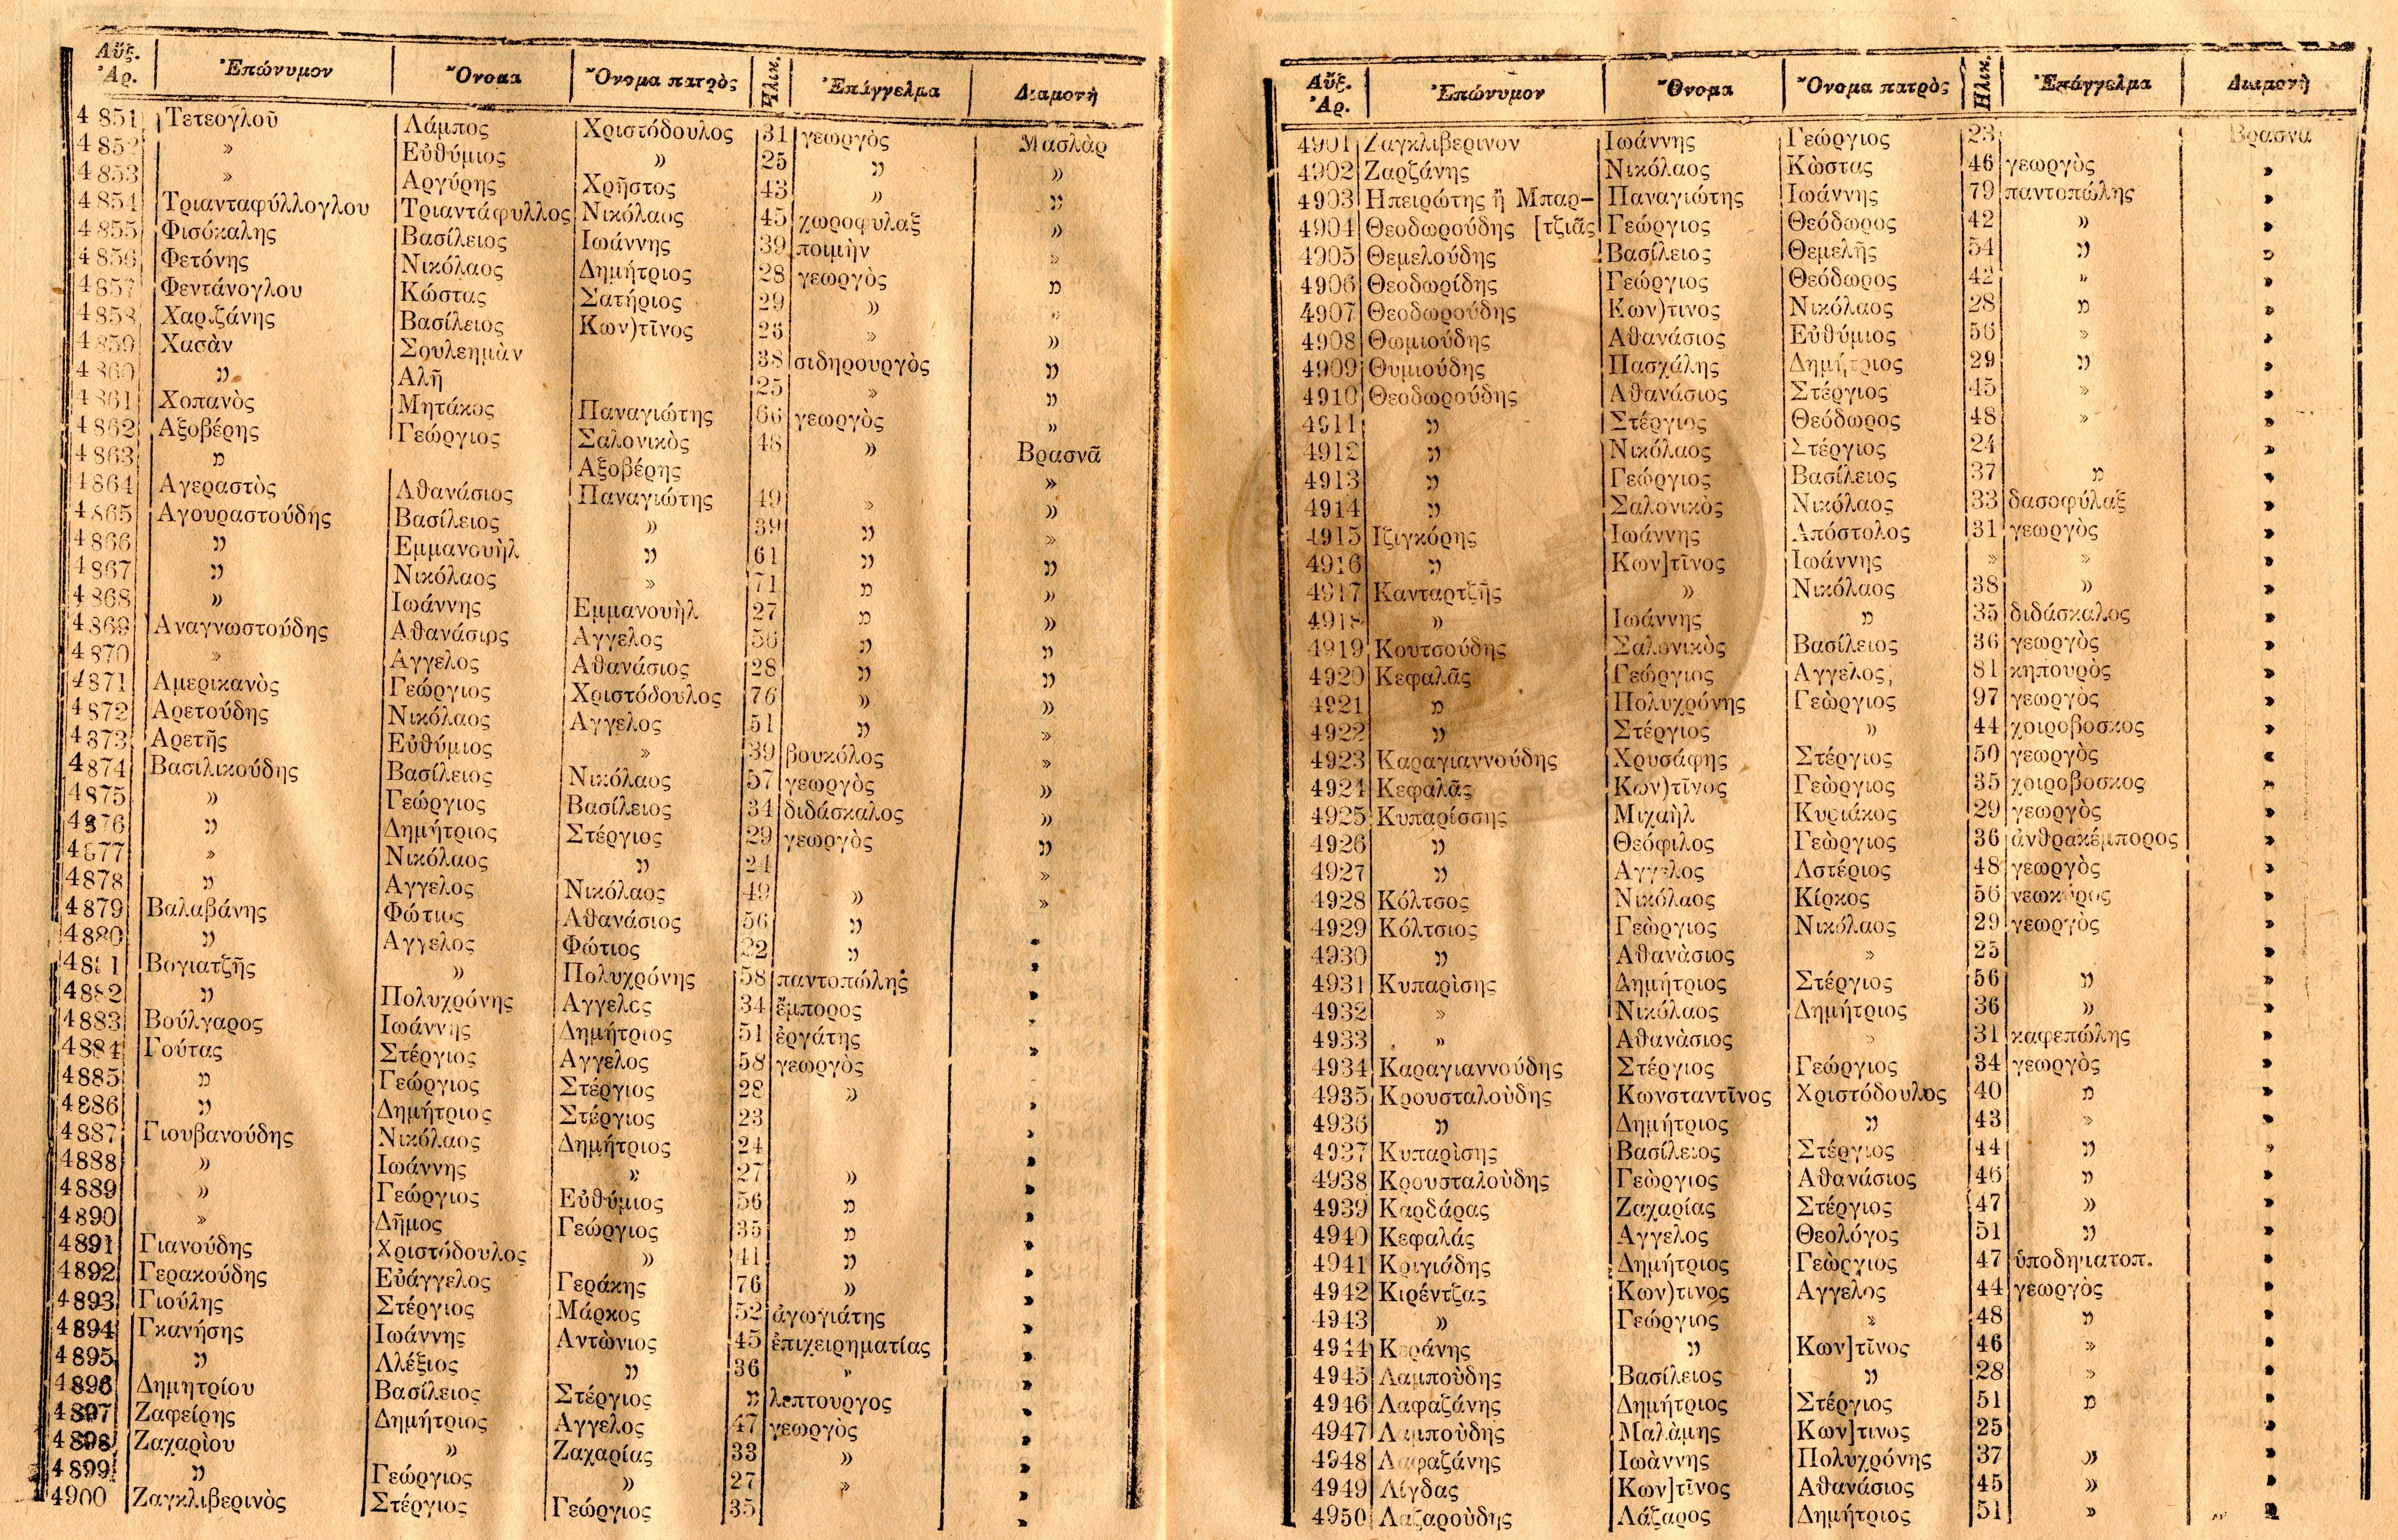 Αὔξ. Ἀρ. Ἐπώνυμον Ὄνομα Ὄνομα πατρὸς Ἡλικ. Ἐπάγγελμα Διαμονὴ
4851 Τετεογλοῦ Λάμπος Χριστόδουλος 31 γεωργὸς Μασλὰρ
4852 » Εὐθύμιος » 25 » »
4853 » Αργύρης Χρῆστος 43 » »
4854 Τριανταφύλλογλου Τριαντάφυλλος Νικόλαος 45 χωροφυλαξ »
4855 Φισόκαλης Βασίλειος Ιωάννης 39 ποιμὴν »
4856 Φετόνης Νικόλαος Δημήτριος 28 γεωργὸς »
4857 Φεντάνογλου Κώστας Σατήριος 29 » »
4858 Χαριζάνης Βασίλειος Κων)τῖνος 26 » »
4859 Χασὰν Σουλεημὰν 38 σιδηρουργὸς »
4860 » Αλῆ 25 » »
4861 Χοπανὸς Μητάκος Παναγιώτης 66 γεωργὸς »
4862 Αξοβέρης Γεώργιος Σαλονικὸς 48 » Βρασνᾶ
4863 » Αξοβέρης »
4864 Αγεραστὸς Αθανάσιος Παναγιώτης 49 » »
4865 Αγουραστούδης Βασίλειος » 39 » »
4866 » Εμμανουὴλ » 61 » »
4867 » Νικόλαος » 71 » »
4868 » Ιωάννης Εμμανουὴλ 27 » »
4869 Αναγνωστούδης Αθανάσιος Αγγελος 56 » »
4870 » Αγγελος Αθανάσιος 28 » »
4871 Αμερικανὸς Γεώργιος Χριστόδουλος 76 » »
4872 Αρετούδης Νικόλαος Αγγελος 51 » »
4873 Αρετῆς Εὐθύμιος » 39 βουκόλος »
4874 Βασιλικούδης Βασίλειος Νικόλαος 57 γεωργὸς »
4875 » Γεώργιος Βασίλειος 34 διδάσκαλος »
4876 » Δημήτριος Στέργιος 29 γεωργὸς »
4877 » Νικόλαος » 24 »
4878 » Αγγελος Νικόλαος 49 » »
4879 Βαλαβάνης Φώτιος Αθανάσιος 56 » »
4880 » Αγγελος Φώτιος 22 » »
4881 Βογιατζῆς » Πολυχρόνης 58 παντοπώλης »
4882 » Πολυχρόνης Αγγελος 34 ἔμπορος »
4883 Βούλγαρος Ιωάννης Δημήτριος 51 ἐργάτης »
4884 Γούτας Στέργιος Αγγελος 58 γεωργὸς »
4885 » Γεώργιος Στέργιος 28 » »
4886 » Δημήτριος Στέργιος 23 »
4887 Γιουβανούδης Νικόλαος Δημήτριος 24 »
4888 » Ιωάννης » 27 » »
4889 » Γεώργιος Εὐθύμιος 56 » »
4890 » Δῆμος Γεώργιος 35 » »
4891 Γιανούδης Χριστόδουλος » 41 » »
4892 Γερακούδης Εὐάγγελος Γεράκης 76 » »
4893 Γιούλης Στέργιος Μάρκος 52 ἀγωγιάτης »
4894 Γκανήσης Ιωάννης Αντὼνιος 45 ἐπιχειρηματίας »
4895 » Αλέξιος » 36 » »
4896 Δημητρίου Βασίλειος Στέργιος » λεπτουργος »
4897 Ζαφείρης Δημήτριος Αγγελος 47 γεωργὸς »
4898 Ζαχαρὶου » Ζαχαρίας 33 » »
4899 » Γεώργιος » 27 » »
4900 Ζαγκλιβερινὸς Στέργιος Γεώργιος 35 »
Αὔξ. Ἀρ. Ἐπώνυμον Ὄνομα Ὄνομα πατρὸς Ἡλικ. Ἐπάγγελμα Διαμονὴ
4901 Ζαγκλιβερινον Ιωάννης Γεώργιος 23 Βρασνα
4902 Ζαρζάνης Νικόλαος Κὼστας 46 γεωργὸς »
4903 Ηπειρώτης ἤ Μπαρ- Παναγιώτης Ιωάννης 79 παντοπώλης »
4904 Θεοδωρούδης [τζιᾶς Γεώργιος Θεόδωρος 42 » »
4905 Θεμελούδης Βασίλειος Θεμελῆς 54 » »
4906 Θεοδωρίδης Γεώργιος Θεόδωρος 42 » »
4907 Θεοδωρούδης Κων)τινος Νικόλαος 28 » »
4908 Θωμιούδης Αθανάσιος Εὐθύμιος 56 » »
4909 Θυμιούδης Πασχάλης Δημήτριος 29 » »
4910 Θεοδωρούδης Αθανάσιος Στέργιος 45 » »
4911 » Στέργιος Θεόδωρος 48 » »
4912 » Νικόλαος Στέργιος 24 »
4913 » Γεώργιος Βασίλειος 37 » »
4914 » Σαλονικὸς Νικόλαος 33 δασοφύλαξ »
4915 Ιζιγκόρης Ιωάννης Απόστολος 31 γεωργὸς »
4916 » Κων]τῖνος Ιωάννης » » »
4917 Κανταρτζῆς » Νικόλαος 38 » »
4918 » Ιωάννης » 35 διδάσκαλος »
4919 Κουτσούδης Σαλονικὸς Βασίλειος 36 γεωργὸς »
4920 Κεφαλᾶς Γεώργιος Αγγελος 81 κηπουρὸς »
4921 » Πολυχρόνης Γεὼργιος 97 γεωργὸς »
4922 » Στέργιος » 44 χοιροβοσκος »
4923 Καραγιαννούδης Χρυσάφης Στέργιος 50 γεωργὸς »
4924 Κεφαλᾶς Κων)τῖνος Γεὼργιος 35 χοιροβοσκος »
4925 Κυπαρίσσης Μιχαὴλ Κυριάκος 29 γεωργὸς »
4926 » Θεόφιλος Γεὼργιος 36 ἀνθρακέμπορος »
4927 » Αγγελος Αστέριος 48 γεωργὸς »
4928 Κόλτσος Νικόλαος Κίρκος 56 νεωκόρος »
4929 Κόλτσιος Γεὼργιος Νικόλαος 29 γεωργὸς »
4930 » Αθανὰσιος » 25 »
4931 Κυπαρὶσης Δημήτριος Στέργιος 56 » »
4932 » Νικόλαος Δημήτριος 36 » »
4933 » Αθανὰσιος » 31 καφεπώλης »
4934 Καραγιαννούδης Στέργιος Γεώργιος 34 γεωργὸς »
4935 Κρουσταλοὺδης Κωνσταντῖνος Χριστόδουλος 40 » »
4936 » Δημήτριος » 43 » »
4937 Κυπαρὶσης Βασίλειος Στέργιος 44 » »
4938 Κρουσταλοὺδης Γεὼργιος Αθανάσιος 46 » »
4939 Καρδάρας Ζαχαρίας Στέργιος 47 » »
4940 Κεφαλάς Αγγελος Θεολόγος 51 » »
4941 Κριγιάδης Δημήτριος Γεὼργιος 47 ὑποδηματοπ. »
4942 Κιρέντζας Κων)τινος Αγγελος 44 γεωργὸς »
4943 » Γεώργιος » 48 » »
4944 Καράνης » Κων]τῖνος 46 » »
4945 Λαμπούδης Βασίλειος » 28 » »
4946 Λαφαζάνης Δημήτριος Στέργιος 51 » »
4947 Λαμπούδης Μαλὰμης Κων]τινος 25 »
4948 Λαφαζάνης Ιωὰννης Πολυχρόνης 37 » »
4949 Λίγδας Κων]τῖνος Αθανάσιος 45 » »
4950 Λαζαροὺδης Λάζαρος Δημήτριος 51 » »